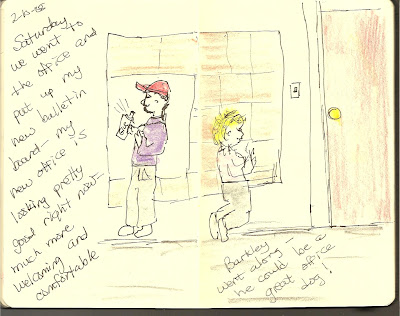 Saturday
we went to
the office and
put up my
new bulletin
board— my
new office is
looking pretty
good right now—
much more
welcoming and
comfortable
Barkley
went along—
he could be a
great office
dog!